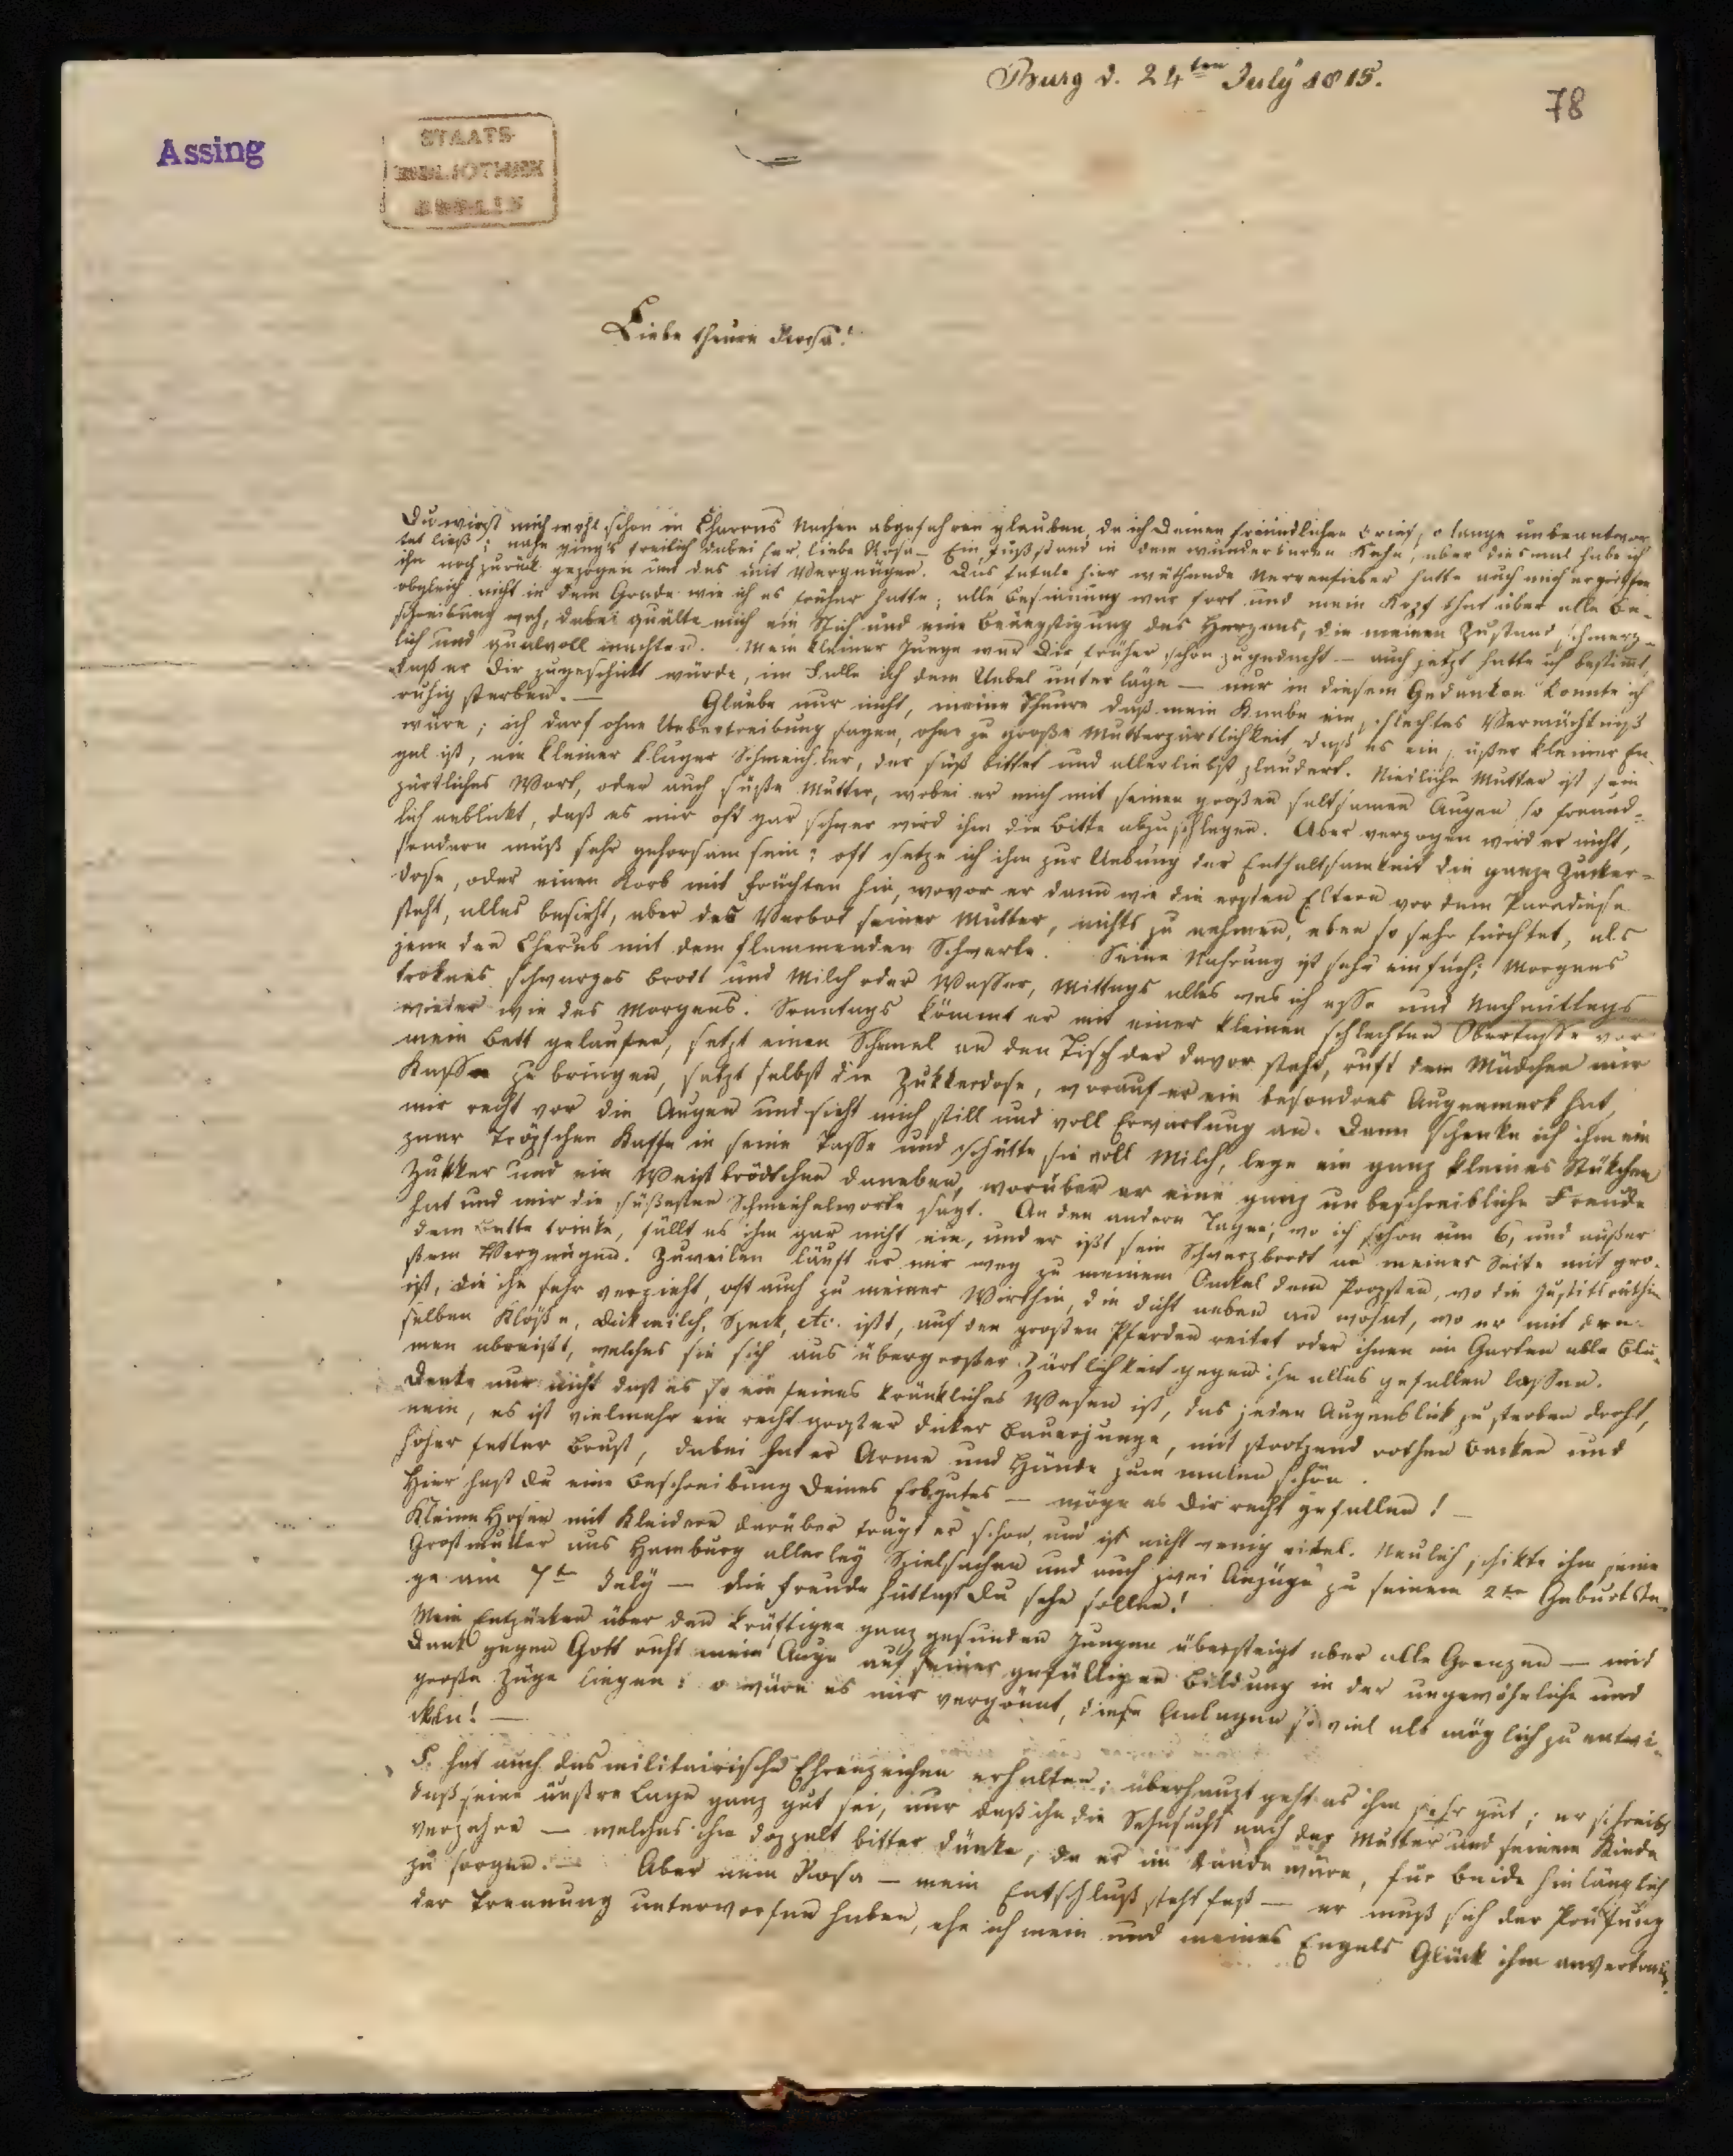 Burg d. 24ten July 1815.
78
Assing
STAATS-
BIBLIOTHEK
BERLIN
Liebe theure Rosa!
Du wirst mich wohl schon in Charons Nachen abgefahren glauben, da ich Deinen freundlichen Brief so lange unbeantwor-
tet ließ; nahe ging's freilich dabei her, liebe Rosa – Ein Fuß stand in dem wunderbaren Kahn, aber diesmal habe ich
ihn noch zurück gezogen und das mit Vergnügen. Das fatale hier wüthende Nervenfieber hatte auch mich ergriffen
obgleich nicht in dem Grade wie ich es früher hatte; alle Besinnung war fort und mein Kopf that über alle Be-
schreibung weh, dabei quälte mich ein Stich und eine Beängstigung des Herzens, die meinen Zustand schmerz-
lich und qualvoll machten. Mein kleiner Junge war Dir früher schon zugedacht – auch jetzt hatte ich bestimmt,
daß er Dir zugeschickt würde, im Falle ich dem Uebel unterläge – nur in diesem Gedanken konnte ich
ruhig sterben. – Glaube nur nicht, meine Theure daß mein Knabe ein schlechtes Vermächtniß
wäre; ich darf ohne Uebertreibung sagen, ohne zu große Mutterzärtlichkeit, daß es ein süßer kleiner En-
gel ist, ein kleiner kluger Schmeichler, der süß bittet und allerliebst plaudert. Niedliche Mutter ist sein
zärtliches Wort, oder auch süße Mutter, wobei er mich mit seinen großen seltsamen Augen so freund-
lich anblickt, daß es mir oft gar schwer wird ihm die Bitte abzuschlagen. Aber verzogen wird er nicht,
sondern muß sehr gehorsam sein; oft setze ich ihm zur Uebung der Enthaltsamkeit die ganze Zucker-
dose, oder einen Korb mit Früchten hin, wovor er dann wie die ersten Eltern vor dem Paradiese
steht, alles besieht, aber das Verbot seiner Mutter, nichts zu nehmen, eben so sehr fürchtet, als
jene den Cherub mit dem flammenden Schwerte. Seine Nahrung ist sehr einfach; Morgens
troknes schwarzes Brodt und Milch oder Wasser, Mittags alles was ich esse und Nachmittags
wieder wie des Morgens. Sonntags kömmt er mit einer kleinen schlechten Obertasse vor
mein Bett gelaufen, setzt einen Schemel an den Tisch der davor steht, ruft dem Mädchen mir
Kaffee zu bringen, setzt selbst die Zukkerdose, worauf er ein besondres Augenmerk hat,
mir recht vor die Augen und sieht mich still und voll Erwartung an. Dann schenke ich ihm ein
paar Tröpfchen Kaffe in seine Tasse und schütte sie voll Milch, lege ein ganz kleines Stükchen
Zukker und ein Weißbrödtchen daneben, worüber er eine ganz unbeschreibliche Freude
hat und mir die süßesten Schmeichelworte sagt. An den andern Tagen, wo ich schon um 6, und außer
dem Bette trinke, fällt es ihm gar nicht ein, und er ißt sein Schwarzbrodt an meiner Seite mit gro-
ßem Vergnügen. Zuweilen läuft er mir weg zu meinem Onkel dem Propsten, wo die Justitsräthin
ist, die ihn sehr verzieht, oft auch zu meiner Wirthin, die dicht neben an wohnt, wo er mit den-
selben Klöße, Dickmilch, Speck, etc. ißt, auf den großen Pferden reitet oder ihnen im Garten alle Blu-
men abreißt, welches sie sich aus übergroßer Zärtlichkeit gegen ihn alles gefallen lassen.
Denke nur nicht daß es so ein feines kränkliches Wesen ist, das jeden Augenblick zu sterben droht,
nein, es ist vielmehr ein recht großer dicker Bauerjunge, mit strotzend rothen Backen und
hoher fetter Brust, dabei hat er Arme und Hände zum malen schön.
Hier hast Du eine Beschreibung Deines Erbgutes – möge es Dir recht gefallen! –
Kleine Hosen mit Kleidern darüber trägt er schon, und ist nicht wenig eitel. Neulich schikte ihm seine
Großmutter aus Hamburg allerley Spielsachen und auch zwei Anzüge zu seinem 2ten Geburtsta-
ge am 7ten July – die Freude hättest Du sehn sollen!
Mein Entzücken über den kräftigen ganz gesunden Jungen übersteigt aber alle Grenzen – mit
Dank gegen Gott ruht mein Auge auf seiner gefälligen Bildung in der ungewöhnliche und
große Züge liegen: o wäre es mir vergönnt, diese Anlagen so viel als möglich zu entwi-
ckeln! –
F. hat auch das militairische Ehrenzeichen erhalten; überhaupt geht es ihm sehr gut; er schreibt
daß seine äußre Lage ganz gut sei, nur daß ihn die Sehnsucht nach der Mutter und seinem Kinde
verzehre – welches ihm doppelt bitter dünke, da er im Stande wäre, für beide hinlänglich
zu sorgen. – Aber nein Rosa – mein Entschluß steht fest – er muß sich der Prüfung
der Trennung unterworfen haben, ehe ich mein und meines Engels Glück ihm anvertraue.